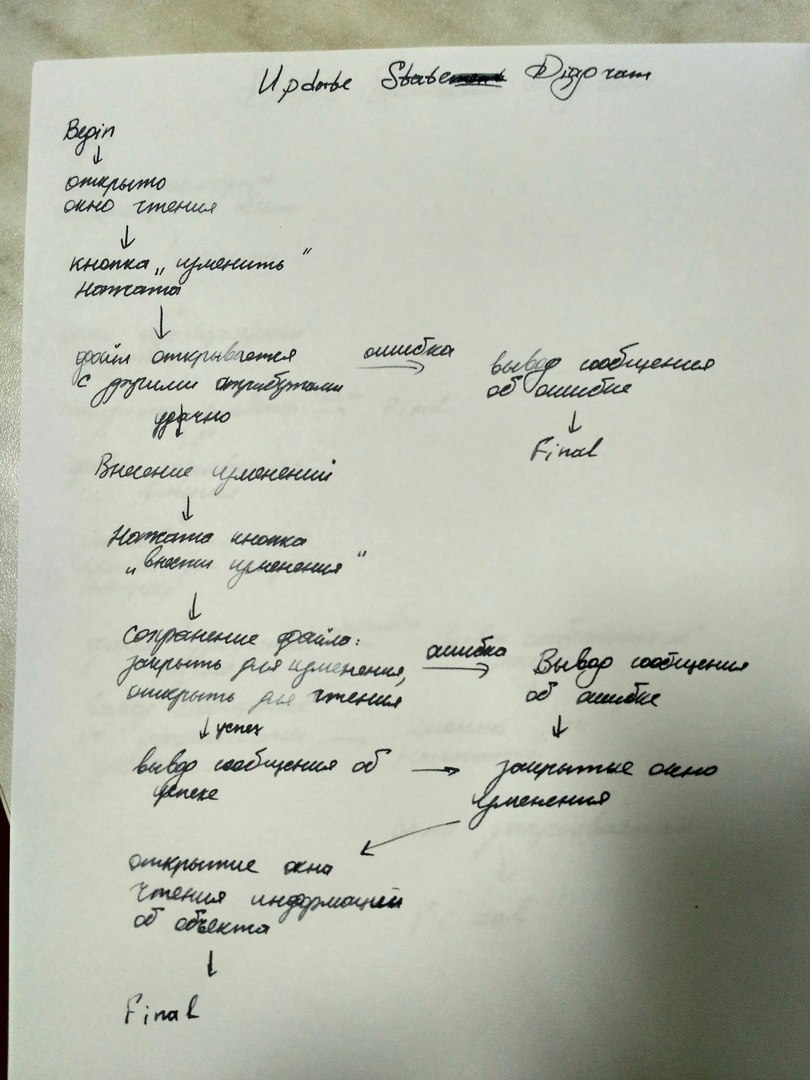 Update State Diagram
Begin
↓
открыто
окно чтения
↓
кнопка „изменить"
нажата
↓
файл открывается
с другими атрибутами
ошибка
→
вывод сообщения
об ошибке
↓
Final
удачно
↓
Внесение изменений
↓
Нажата кнопка
„внести изменения"
↓
Сохранение файла:
закрыть для изменения,
открыть для чтения
ошибка
→
Вывод сообщения
об ошибке
↓
↓ успех
вывод сообщения об
успехе
→
закрытие окно
изменения
↙
открытие окна
чтения информацией
об объекта
↓
Final